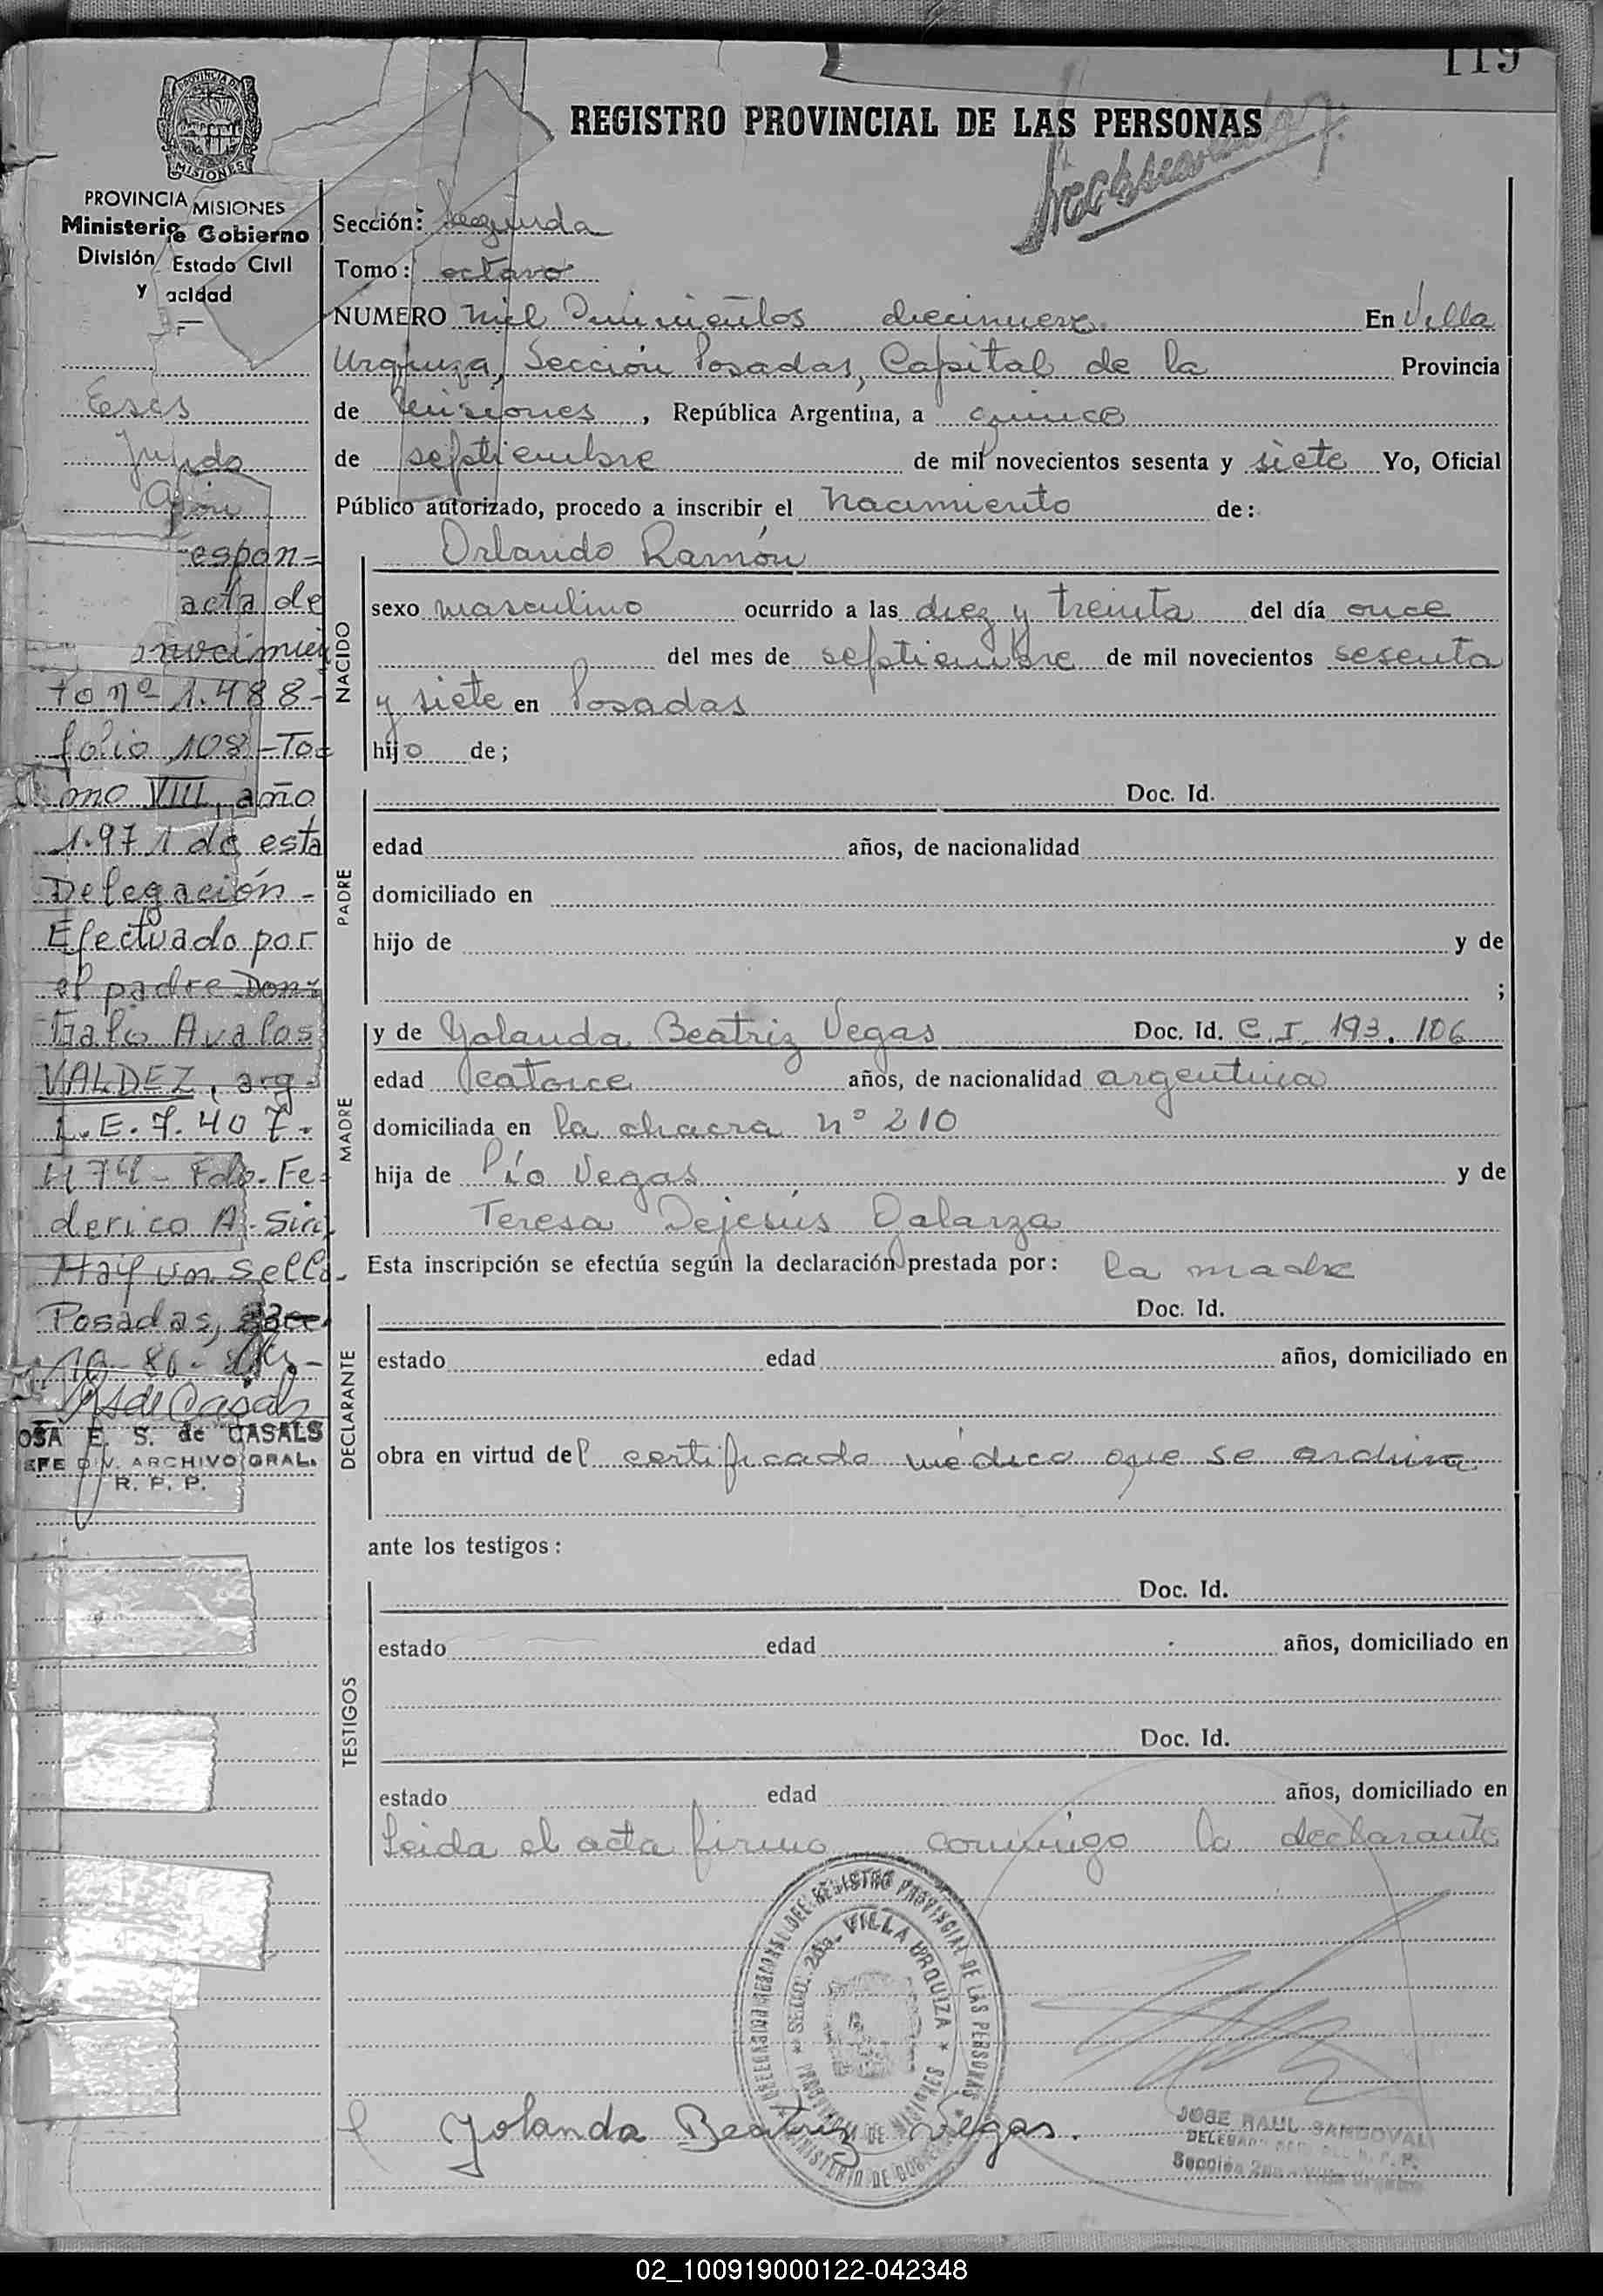 119
REGISTRO PROVINCIAL DE LAS PERSONAS
PROVINCIA DE
MISIONES
PROVINCIA MISIONES
Ministerio Gobierno
División Estado Civil
y acidad
Sección: Segunda
Tomo: octavo
NUMERO mil Quinientos diecinueve En Villa
Urquiza, Sección Posadas, Capital de la Provincia
de Misiones, República Argentina, a quince
de septiembre de mil novecientos sesenta y siete Yo, Oficial
Público autorizado, procedo a inscribir el Nacimiento de:
NACIDO
Orlando Ramón
sexo masculino ocurrido a las diez y treinta del día once
del mes de septiembre de mil novecientos sesenta
y siete en Posadas
hijo de;
PADRE
Doc. Id.
edad años, de nacionalidad
domiciliado en
hijo de y de
;
MADRE
y de Yolanda Beatriz Vegas Doc. Id. C.I. 193.106
edad catorce años, de nacionalidad argentina
domiciliada en la chacra nº 210
hija de Pío Vegas y de
Teresa Dejesús Galarza
Esta inscripción se efectúa según la declaración prestada por: la madre
DECLARANTE
Doc. Id.
estado edad años, domiciliado en
obra en virtud del certificado médico que se archiva
ante los testigos:
TESTIGOS
Doc. Id.
estado edad años, domiciliado en
Doc. Id.
estado edad años, domiciliado en
Leida el acta firma conmigo la declarante
espon=
acta de
nocimien
to nº 1.488-
folio 108-To=
mo VIII, año
1.971 de esta
Delegación-
Efectuado por
el padre Don
Italo Avalos
VALDEZ, arg
L.E. 7.407.
474- Fdo. Fe
derico A.
Hay un sello.
Posadas,
10-86-
OSA E. S. de CASALS
EFE DIV. ARCHIVO GRAL.
R. P. P.
DEL REGISTRO PROVINCIAL DE LAS PERSONAS
SECC. 2da. VILLA URQUIZA
PROVINCIA DE MISIONES
MINISTERIO DE GOBIERNO
Yolanda Beatriz Vegas.
JOSE RAUL SANDOVAL
02_100919000122-042348